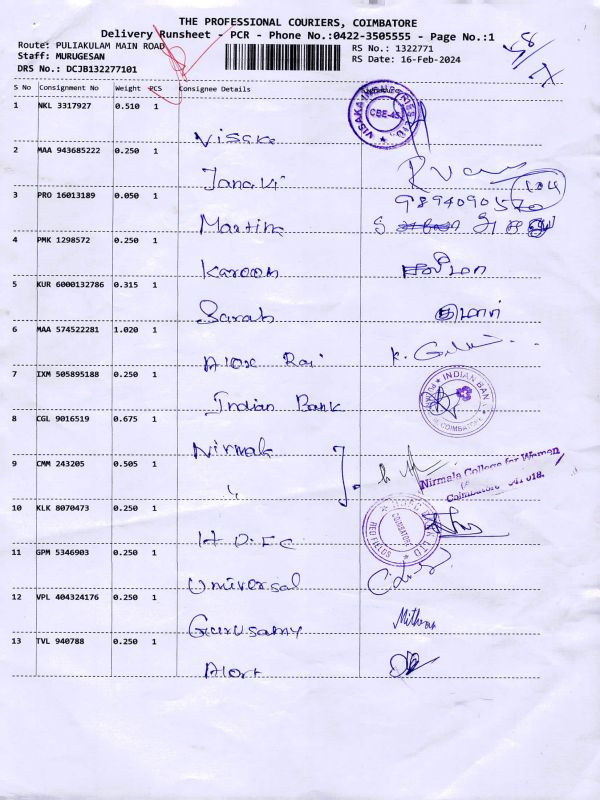 THE PROFESSIONAL COURIERS, COIMBATORE
Delivery Runsheet - PCR - Phone No.:0422-3505555 - Page No.:1
Route: PULIAKULAM MAIN ROAD
RS No.: 1322771
Staff: MURUGESAN
RS Date: 16-Feb-2024
DRS No.: DCJB132277101
S No Consignment No Weight PCS Consignee Details
1 NKL 3317927 0.510 1
Visaka
VISAKA INDUSTRIES LTD
CBE-45
2 MAA 943685222 0.250 1
Janaki
3 PRO 16013189 0.050 1
9894090520
Martin
4 PMK 1298572 0.250 1
Karoon
5 KUR 6000132786 0.315 1
Sarah
குமார்
6 MAA 574522281 1.020 1
Alox Raj
7 IXM 505895188 0.250 1
Indian Bank
INDIAN BANK
COIMBATORE
8 CGL 9016519 0.675 1
Nirmala
9 CMM 243205 0.505 1
"
Nirmala College for Women
Coimbatore - 641 018.
10 KLK 8070473 0.250 1
H.D.F.C
HDFC BANK LTD
COIMBATORE
11 GPM 5346903 0.250 1
Universal
12 VPL 404324176 0.250 1
Gurusamy
Mithran
13 TVL 940788 0.250 1
Alort